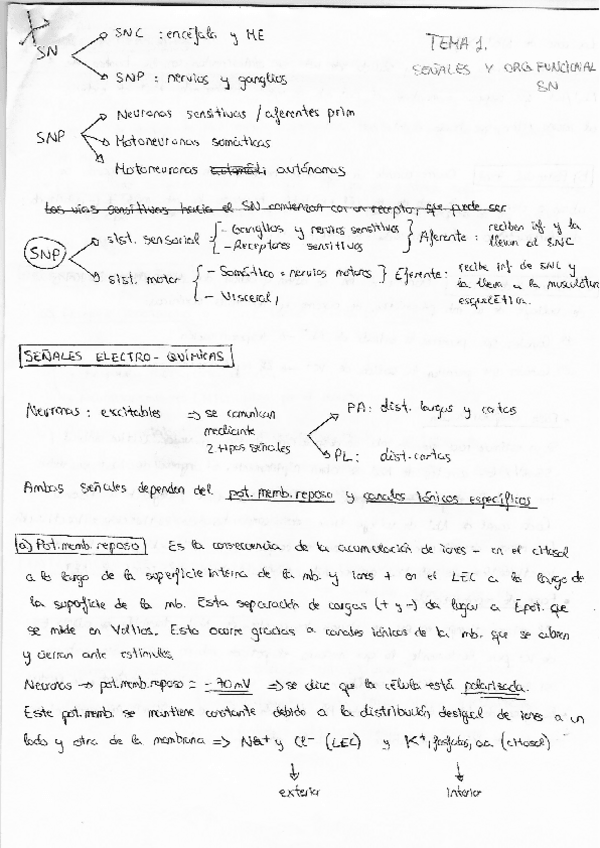 TEMA 1.
SEÑALES Y ORG FUNCIONAL
SN
SN
SNC : encéfalo y ME
SNP : nervios y ganglios
SNP
Neuronas sensitivas / aferentes prim
Motoneuronas somáticas
Motoneuronas autónomas
Las vías sensitivas hacia el SN comienzan con un receptor, que puede ser
SNP
sist. sensorial { - Ganglios y nervios sensitivos } Aferente : reciben inf y la
- Receptores sensitivos llevan al SNC
sist. motor { - Somático = nervios motores } Eferente : recibe inf de SNC y
- Visceral, la lleva a la musculatura
esquelética.
SEÑALES ELECTRO - QUÍMICAS
Neuronas : excitables ⇒ se comunican
mediante
2 tipos señales
PA : dist. largas y cortas
PL : dist. cortas
Ambas señales dependen del pot. memb. reposo y canales iónicos específicos
a) Pot. memb. reposo Es la consecuencia de la acumulación de iones - en el citosol
a lo largo de la superficie interna de la mb. y iones + en el LEC a lo largo de
la superficie de la mb. Esta separación de cargas (+ y -) da lugar a Epot. que
se mide en Voltios. Esto ocurre gracias a canales iónicos de la mb. que se abren
y cierran ante estímulos.
Neuronas → pot. memb. reposo = -70 mV ⇒ se dice que la célula está polarizada.
Este pot. memb. se mantiene constante debido a la distribución desigual de iones a un
lado y otro de la membrana ⇒ Na+ y Cl- (LEC) y K+, fosfatos, aa (citosol)
↓ ↓
exterior interior